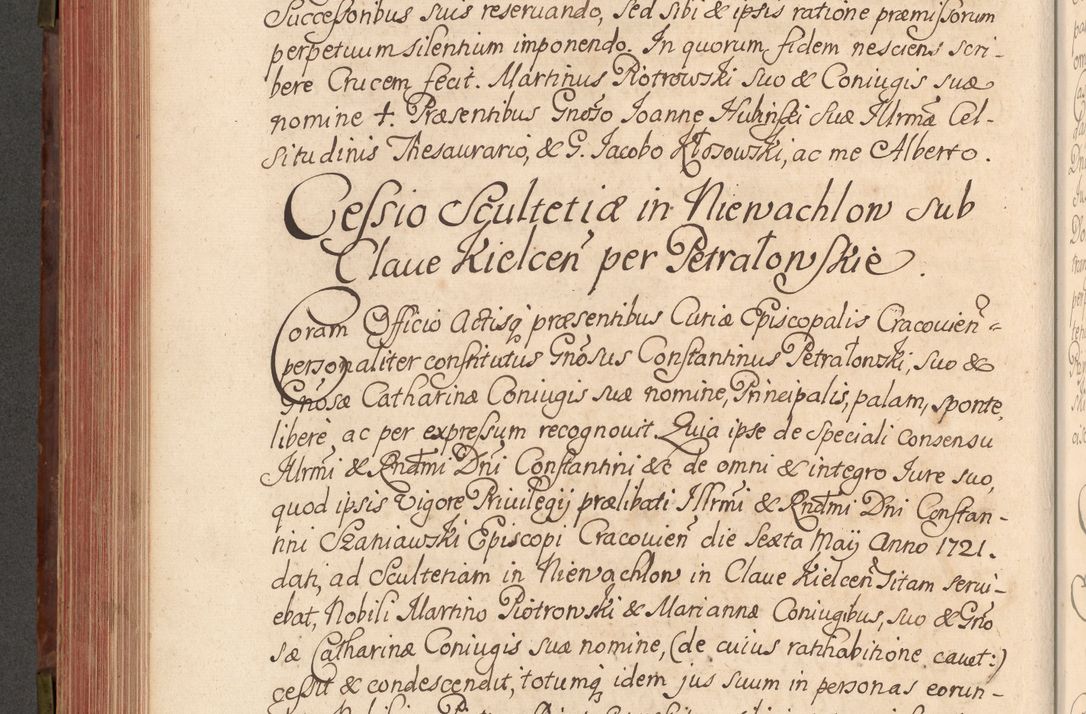 Successoribus suis reservando, sed sibi & ipsis ratione præmissorum
perpetuum silentium imponendo. In quorum fidem nesciens scri-
bere Crucem fecit. Martinus Piotrowski suo & Coniugis suæ
nomine +. Præsentibus Gnoso Joanne Huhinski suæ Illrmæ Cel-
situdinis Thesaurario, & G. Jacobo Kłosowski, ac me Alberto.
Cessio Scultetiæ in Niewachlow sub
Claue Kielceñ per Petrałowskie.
Coram Officio Actisq præsentibus Curiæ Episcopalis Cracouieñ
personaliter constitutus Gnosus Constantinus Petrałowski, suo &
Gnosæ Catharinæ Coniugis suæ nomine, Principalis, palam, sponte,
liberè, ac per expressum recognouit Quia ipse de speciali consensu
Illrmi & Rndmi Dni Constantini &c de omni & integro Jure suo,
quod ipsis vigore Priuilegij prælibati Illrmi & Rndmi Dni Constan-
tini Szaniawski Episcopi Cracouieñ die sexta Maij Anno 1721.
dati, ad Scultetiam in Niewachlow in Claue Kielceñ sitam serui-
ebat, Nobili Martino Piotrowski & Mariannæ Coniugibus, suo & Gno
sæ Catharinæ Coniugis suæ nomine, (de cuius ratihabitione cauet:)
cessit & condescendit, totumq idem jus suum in personas eorun-